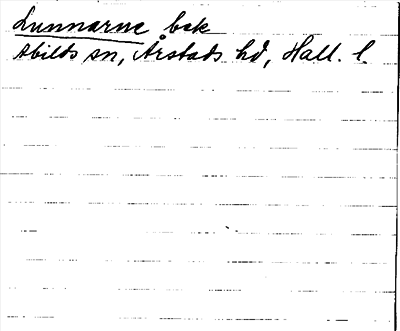 Lunnarne bek
Abilds sn, Årstads hd, Hall. l.